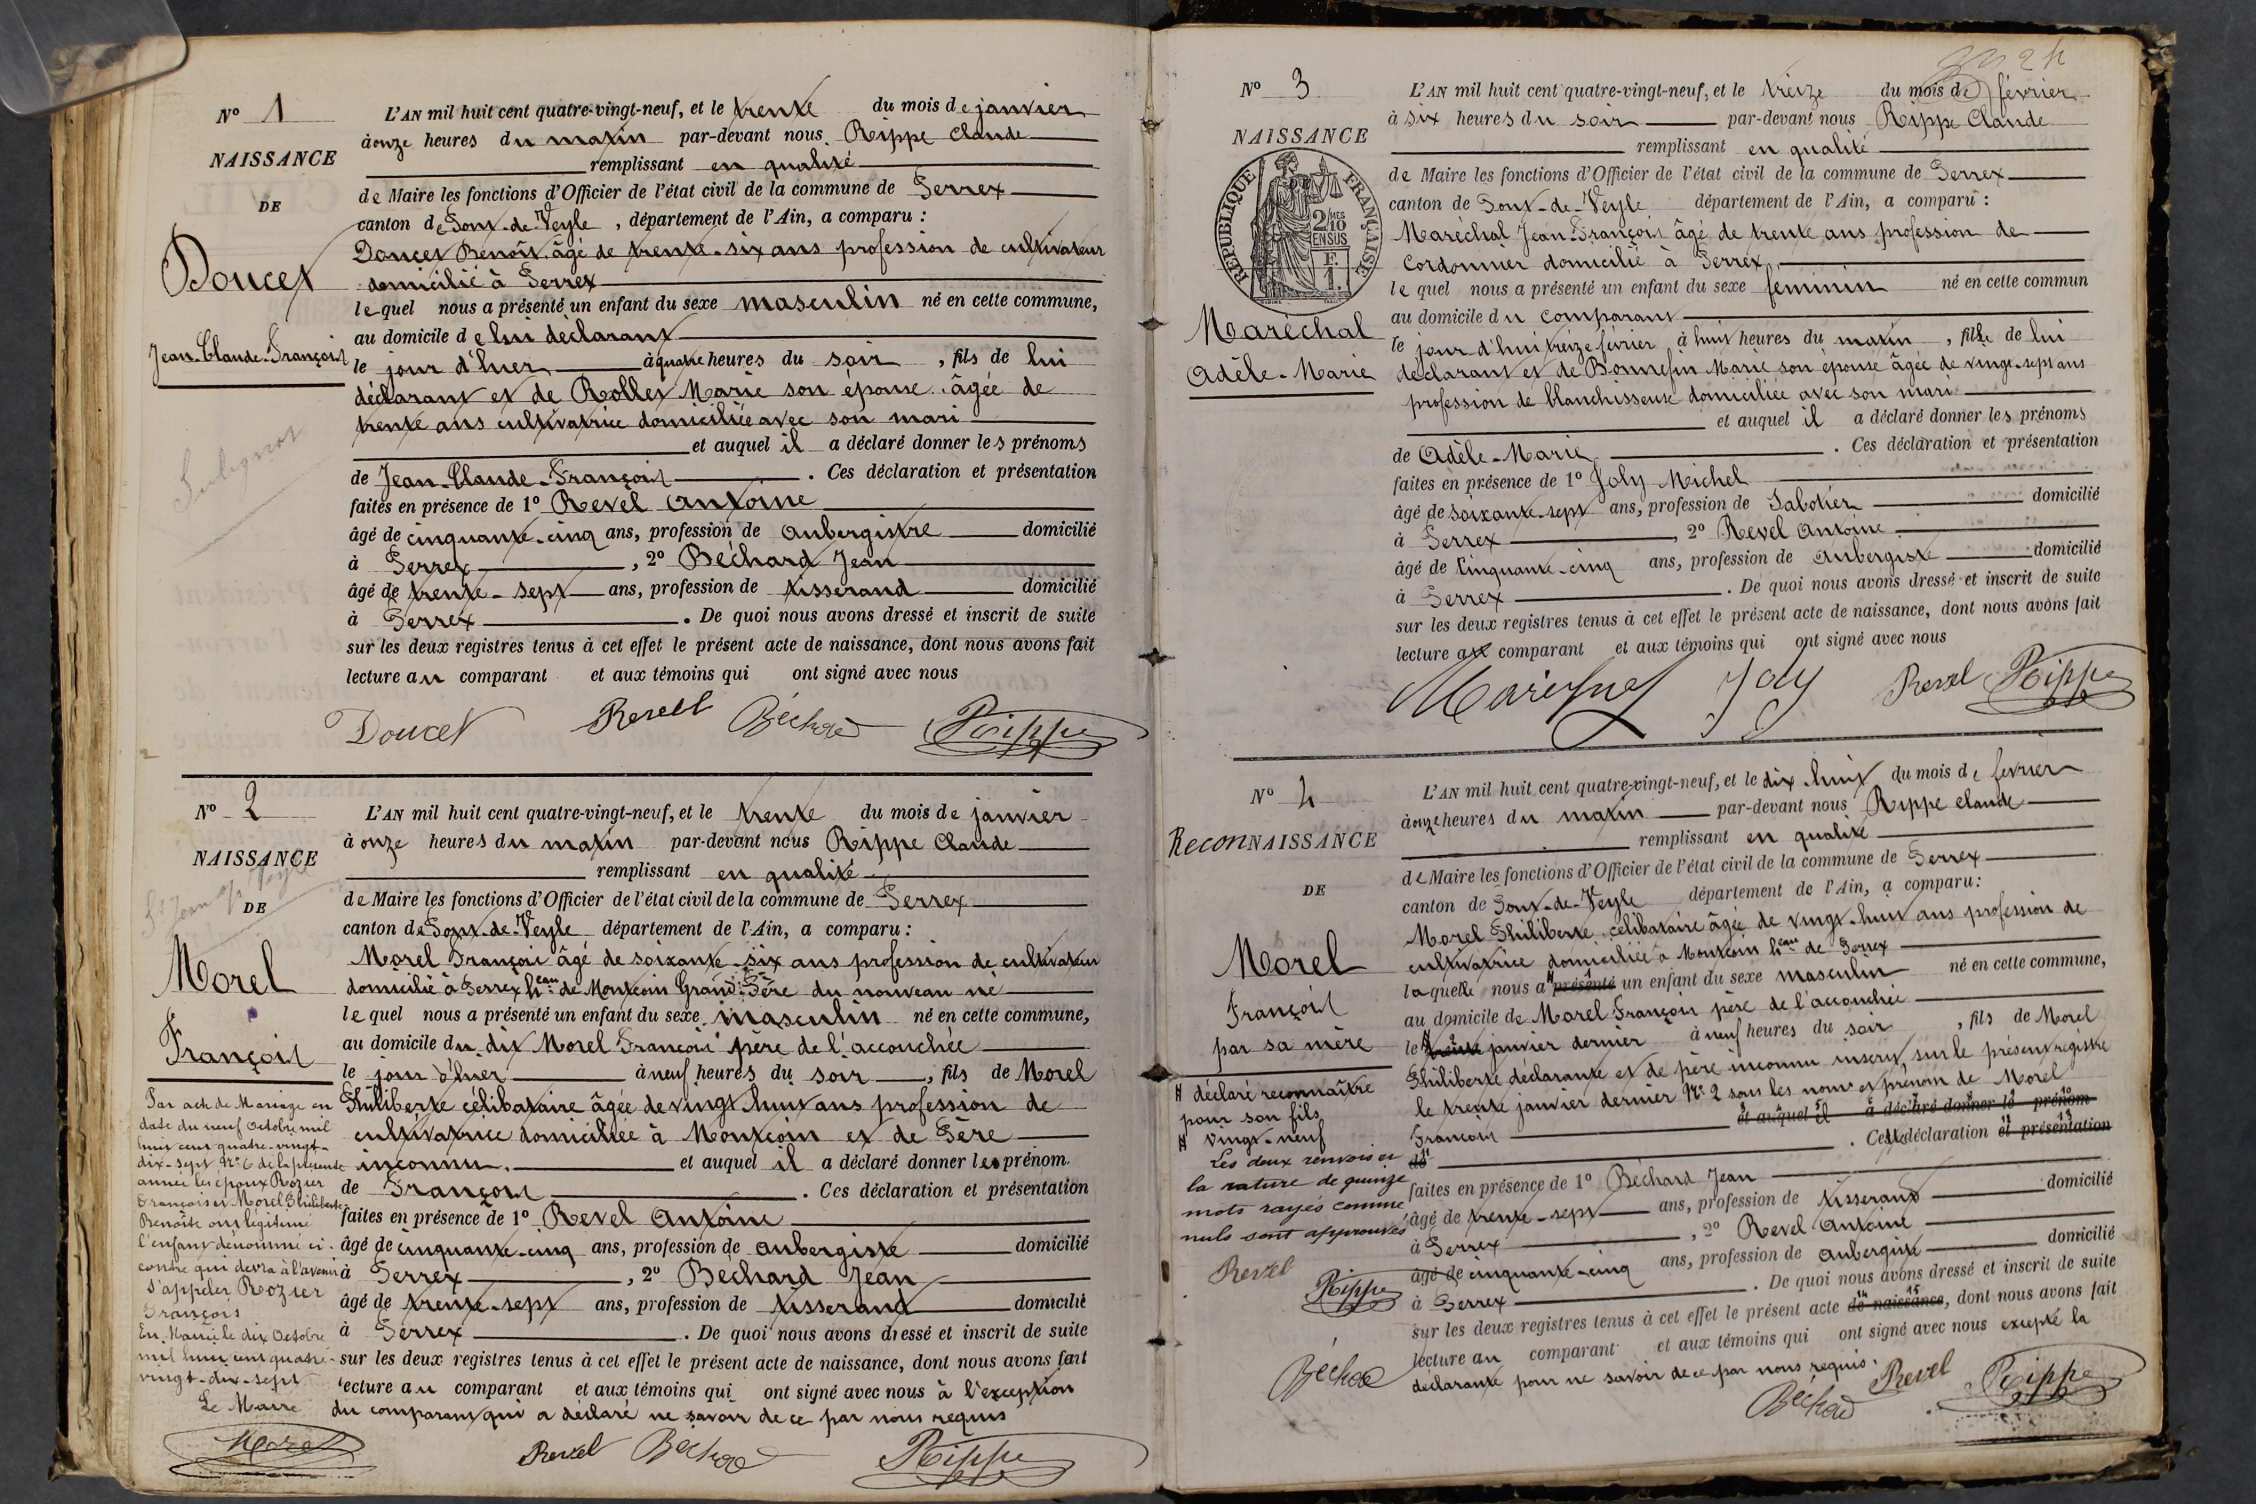 N° 1
NAISSANCE
DE
Doucet
Jean-Claude-François
L'AN mil huit cent quatre-vingt-neuf, et le trente du mois de janvier
à onze heures du matin par-devant nous Rippe Claude
remplissant en qualité
de Maire les fonctions d'Officier de l'état civil de la commune de Perrex
canton de Pont-de-Veyle, département de l'Ain, a comparu :
Doucet Benoît âgé de trente-six ans profession de cultivateur
domicilié à Perrex
lequel nous a présenté un enfant du sexe masculin né en cette commune,
au domicile de lui déclarant
le jour d'hier à quatre heures du soir, fils de lui
déclarant et de Rollet Marie son épouse âgée de
trente ans cultivatrice domiciliée avec son mari
et auquel il a déclaré donner les prénoms
de Jean-Claude-François. Ces déclaration et présentation
faites en présence de 1° Revel Antoine
âgé de cinquante-cinq ans, profession de aubergiste domicilié
à Perrex, 2° Béchard Jean
âgé de trente-sept ans, profession de tisserand domicilié
à Perrex. De quoi nous avons dressé et inscrit de suite
sur les deux registres tenus à cet effet le présent acte de naissance, dont nous avons fait
lecture au comparant et aux témoins qui ont signé avec nous
Doucet Revel Béchard Rippe
N° 2
NAISSANCE
DE
Morel
François
L'AN mil huit cent quatre-vingt-neuf, et le trente du mois de janvier
à onze heures du matin par-devant nous Rippe Claude
remplissant en qualité
de Maire les fonctions d'Officier de l'état civil de la commune de Perrex
canton de Pont-de-Veyle département de l'Ain, a comparu :
Morel François âgé de soixante-six ans profession de cultivateur
domicilié à Perrex heau de Montcoin Grand-Père du nouveau né
lequel nous a présenté un enfant du sexe masculin né en cette commune,
au domicile du dit Morel François père de l'accouchée
le jour d'hier à neuf heures du soir, fils de Morel
Philiberte célibataire âgée de vingt huit ans profession de
cultivatrice domiciliée à Montcoin et de Père
inconnu. et auquel il a déclaré donner les prénom
de François. Ces déclaration et présentation
faites en présence de 1° Revel Antoine
âgé de cinquante-cinq ans, profession de aubergiste domicilié
à Perrex, 2° Béchard Jean
âgé de trente-sept ans, profession de tisserand domicilié
à Perrex. De quoi nous avons dressé et inscrit de suite
sur les deux registres tenus à cet effet le présent acte de naissance, dont nous avons fait
lecture au comparant et aux témoins qui ont signé avec nous à l'exception
du comparant qui a déclaré ne savoir de ce par nous requis
Revel Béchard Rippe
Par acte de Mariage en
date du neuf Octobre mil
huit cent quatre-vingt-
dix-sept N° 6 de la présente
année les époux Rozier
François et Morel Philiberte
Benoîte ont légitimé
l'enfant dénommé ci-
contre qui devra à l'avenir
s'appeler Rozier
François
En Mairie le dix Octobre
mil huit cent quatre-
vingt-dix-sept
Le Maire
Morel
N° 3
NAISSANCE
RÉPUBLIQUE FRANÇAISE
2/10 MES
EN SUS
F.
1.
Maréchal
Adèle-Marie
L'AN mil huit cent quatre-vingt-neuf, et le treize du mois de février
à six heures du soir par-devant nous Rippe Claude
remplissant en qualité
de Maire les fonctions d'Officier de l'état civil de la commune de Perrex
canton de Pont-de-Veyle département de l'Ain, a comparu :
Maréchal Jean-François âgé de trente ans profession de
Cordonnier domicilié à Perrex
lequel nous a présenté un enfant du sexe féminin né en cette commun
au domicile du comparant
le jour d'hui treize février à huit heures du matin, fille de lui
déclarant et de Bonnefin Marie son épouse âgée de vingt-sept ans
profession de blanchisseuse domiciliée avec son mari
et auquel il a déclaré donner les prénoms
de Adèle-Marie. Ces déclaration et présentation
faites en présence de 1° Joly Michel
âgé de soixante-sept ans, profession de Sabotier domicilié
à Perrex, 2° Revel Antoine
âgé de Cinquante-cinq ans, profession de Aubergiste domicilié
à Perrex. De quoi nous avons dressé et inscrit de suite
sur les deux registres tenus à cet effet le présent acte de naissance, dont nous avons fait
lecture au comparant et aux témoins qui ont signé avec nous
Joly Revel Rippe
N° 4
ReconNAISSANCE
DE
Morel
François
par sa mère
L'AN mil huit cent quatre-vingt-neuf, et le dix-huit du mois de février
à onze heures du matin par-devant nous Rippe Claude
remplissant en qualité
de Maire les fonctions d'Officier de l'état civil de la commune de Perrex
canton de Pont-de-Veyle département de l'Ain, a comparu :
Morel Philiberte célibataire âgée de vingt-huit ans profession de
cultivatrice domiciliée à Montcoin heau de Perrex
laquelle nous a présenté un enfant du sexe masculin né en cette commune,
au domicile de Morel François père de l'accouchée
le trente janvier dernier à neuf heures du soir, fils de Morel
Philiberte déclarante et de père inconnu inscrit sur le présent registre
le trente janvier dernier N° 2 sous les noms et prénom de Morel
François et auquel il a déclaré donner le prénom
de. Cette déclaration et présentation
faites en présence de 1° Béchard Jean
âgé de trente-sept ans, profession de tisserand domicilié
à Perrex, 2° Revel Antoine
âgé de cinquante-cinq ans, profession de aubergiste domicilié
à Perrex. De quoi nous avons dressé et inscrit de suite
sur les deux registres tenus à cet effet le présent acte de naissance, dont nous avons fait
lecture au comparant et aux témoins qui ont signé avec nous excepté la
déclarante pour ne savoir de ce par nous requis.
Béchard Revel Rippe
# déclaré reconnaître
pour son fils
# vingt-neuf
Les deux renvois et
la rature de quinze
mots rayés comme
nuls sont approuvés
Revel
Rippe
Béchard